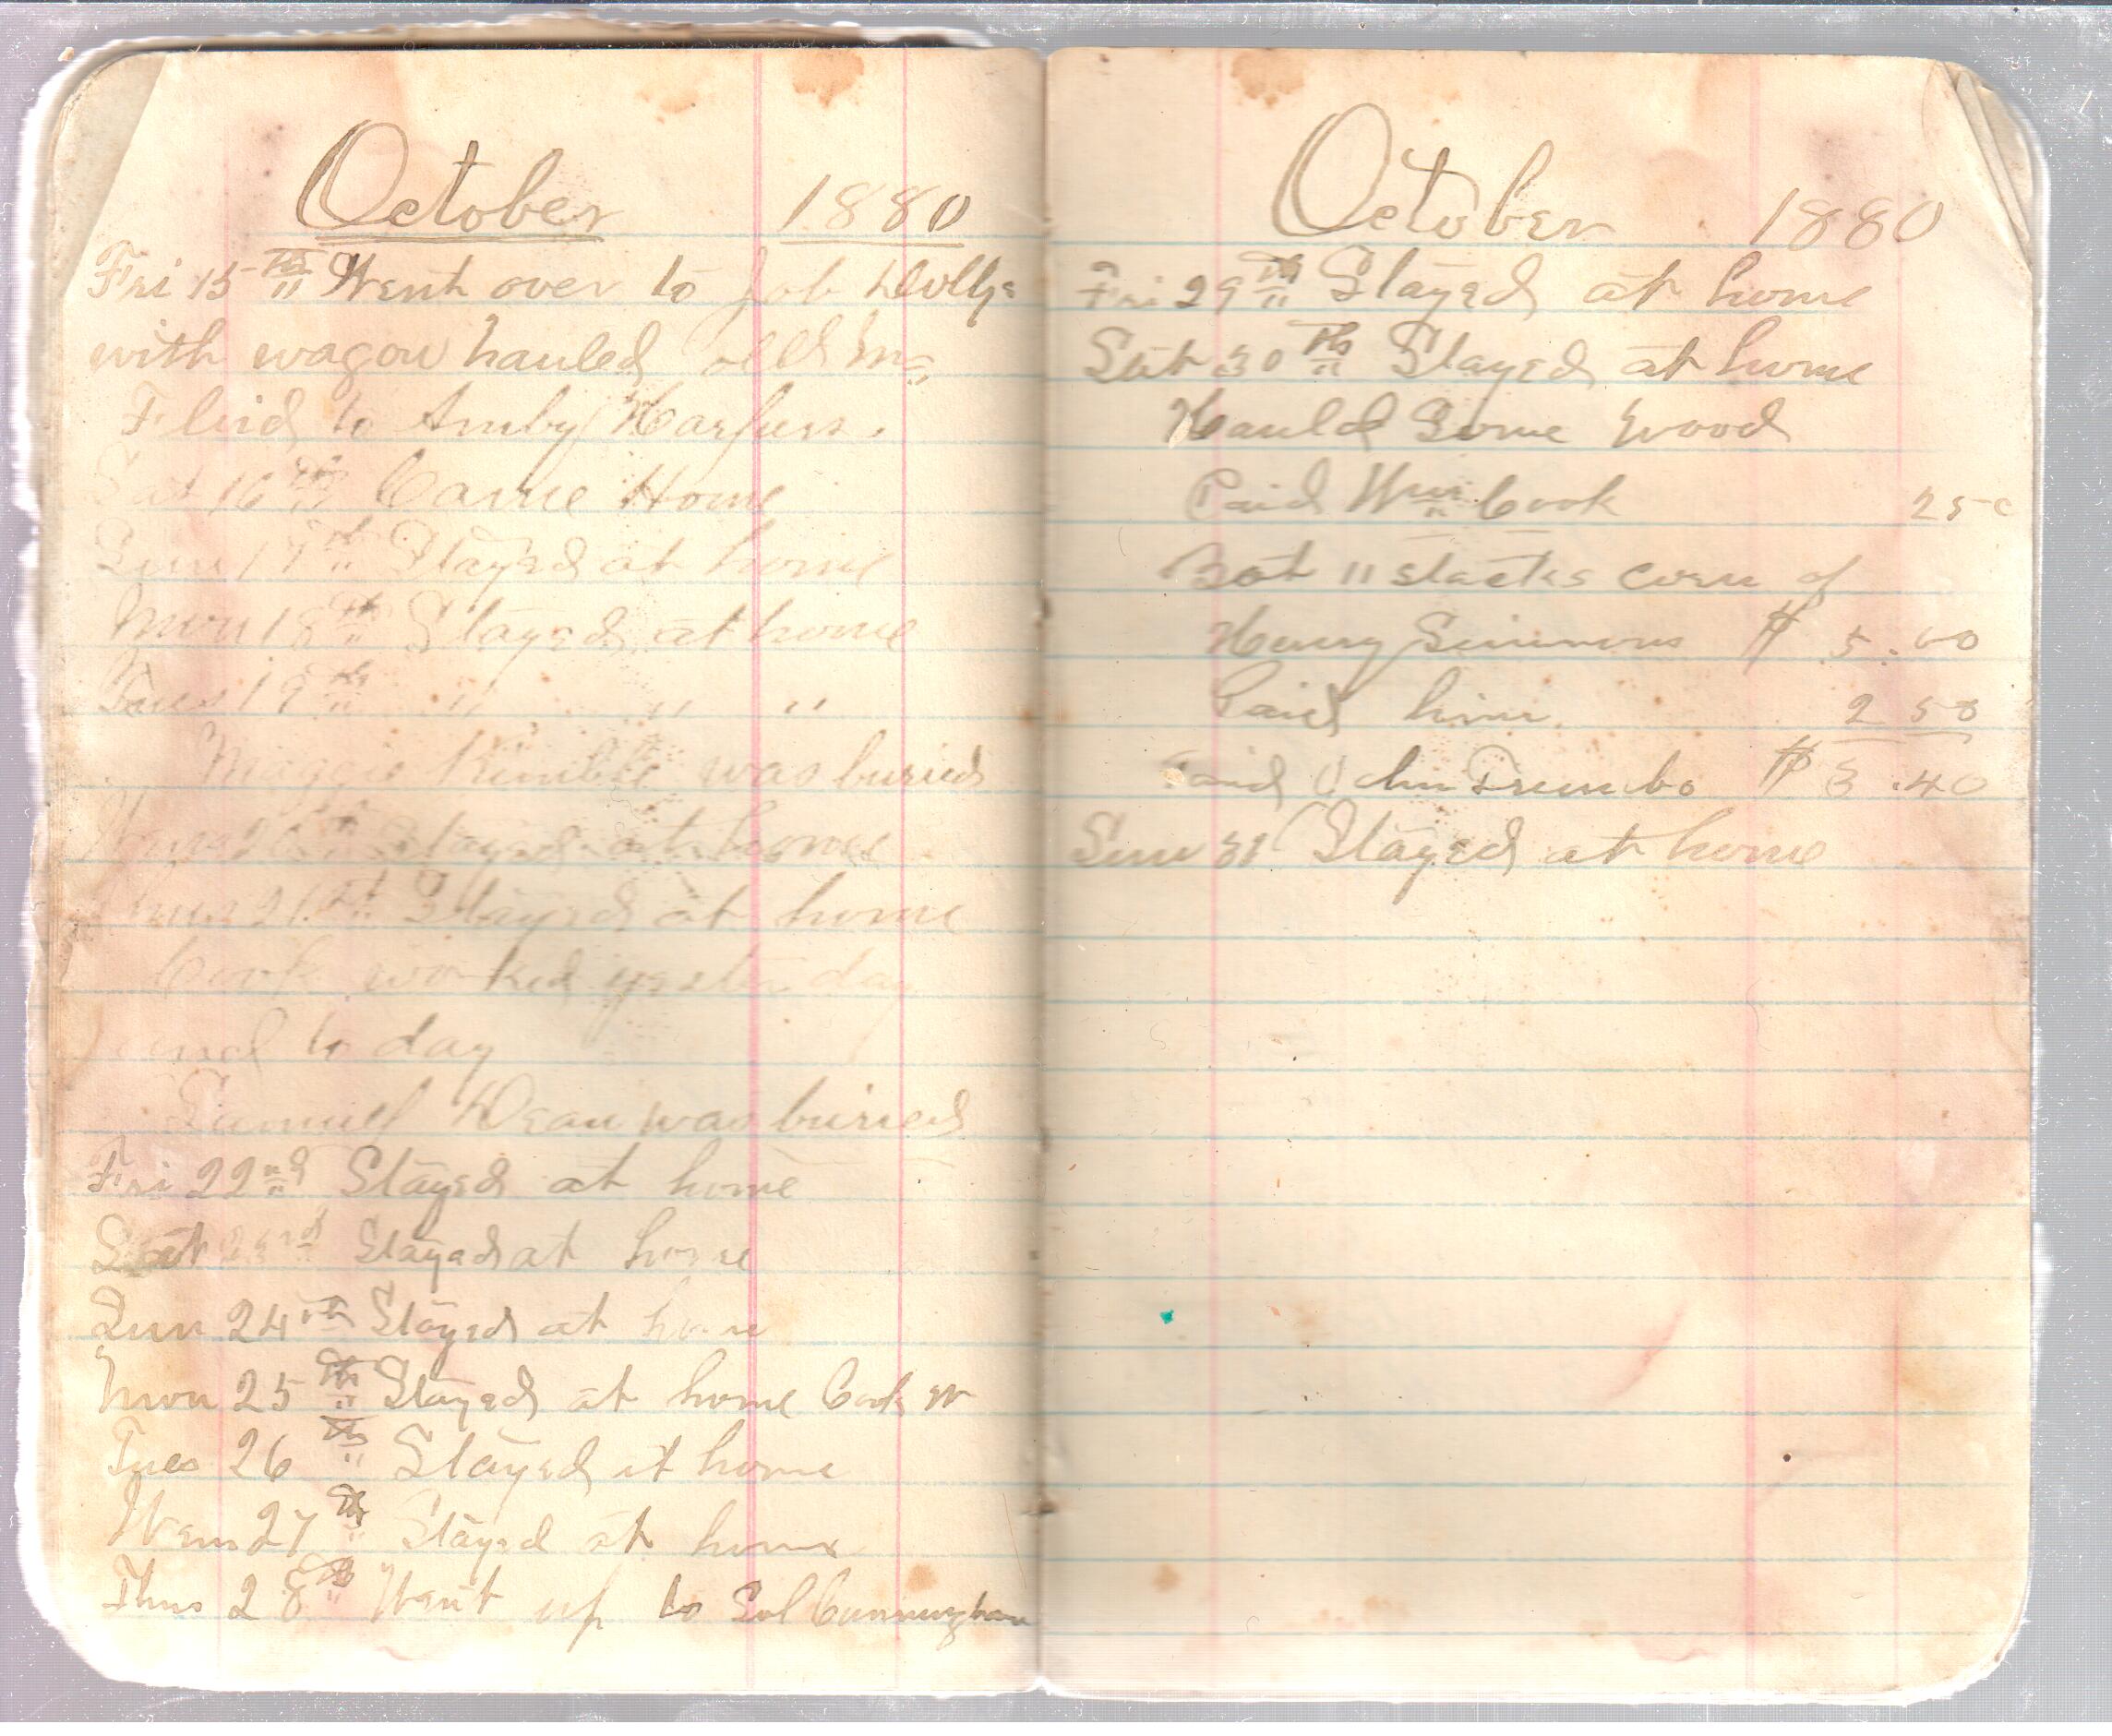 October 1880
Fri 15th Went over to Job
with wagon hauled old Mr
to Amby
Sat 16th Came Home
Sun 17th Stayed at home
Mon 18th Stayed at home
Tues 19th " " "
Maggie Kimble was buried
20th Stayed at home
Thurs 21st Stayed at home
Cook worked yesterday
and to day
Samuel Dean was buried
Fri 22nd Stayed at home
Sat 23rd Stayed at home
Sun 24th Stayed at home
Mon 25th Stayed at home Cook W
Tues 26th Stayed at home
Wens 27th Stayed at home
Thus 28th Went up to Sol Cunningham
October 1880
Fri 29th Stayed at home
Sat 30th Stayed at home
Hauld Some Wood
Paid Wm Cook 25c
Bot 11 stacks corn of
Henry Simmons $ 5.00
Paid him 2 50
Paid John Trumbo $ 3.40
Sun 31 Stayed at home